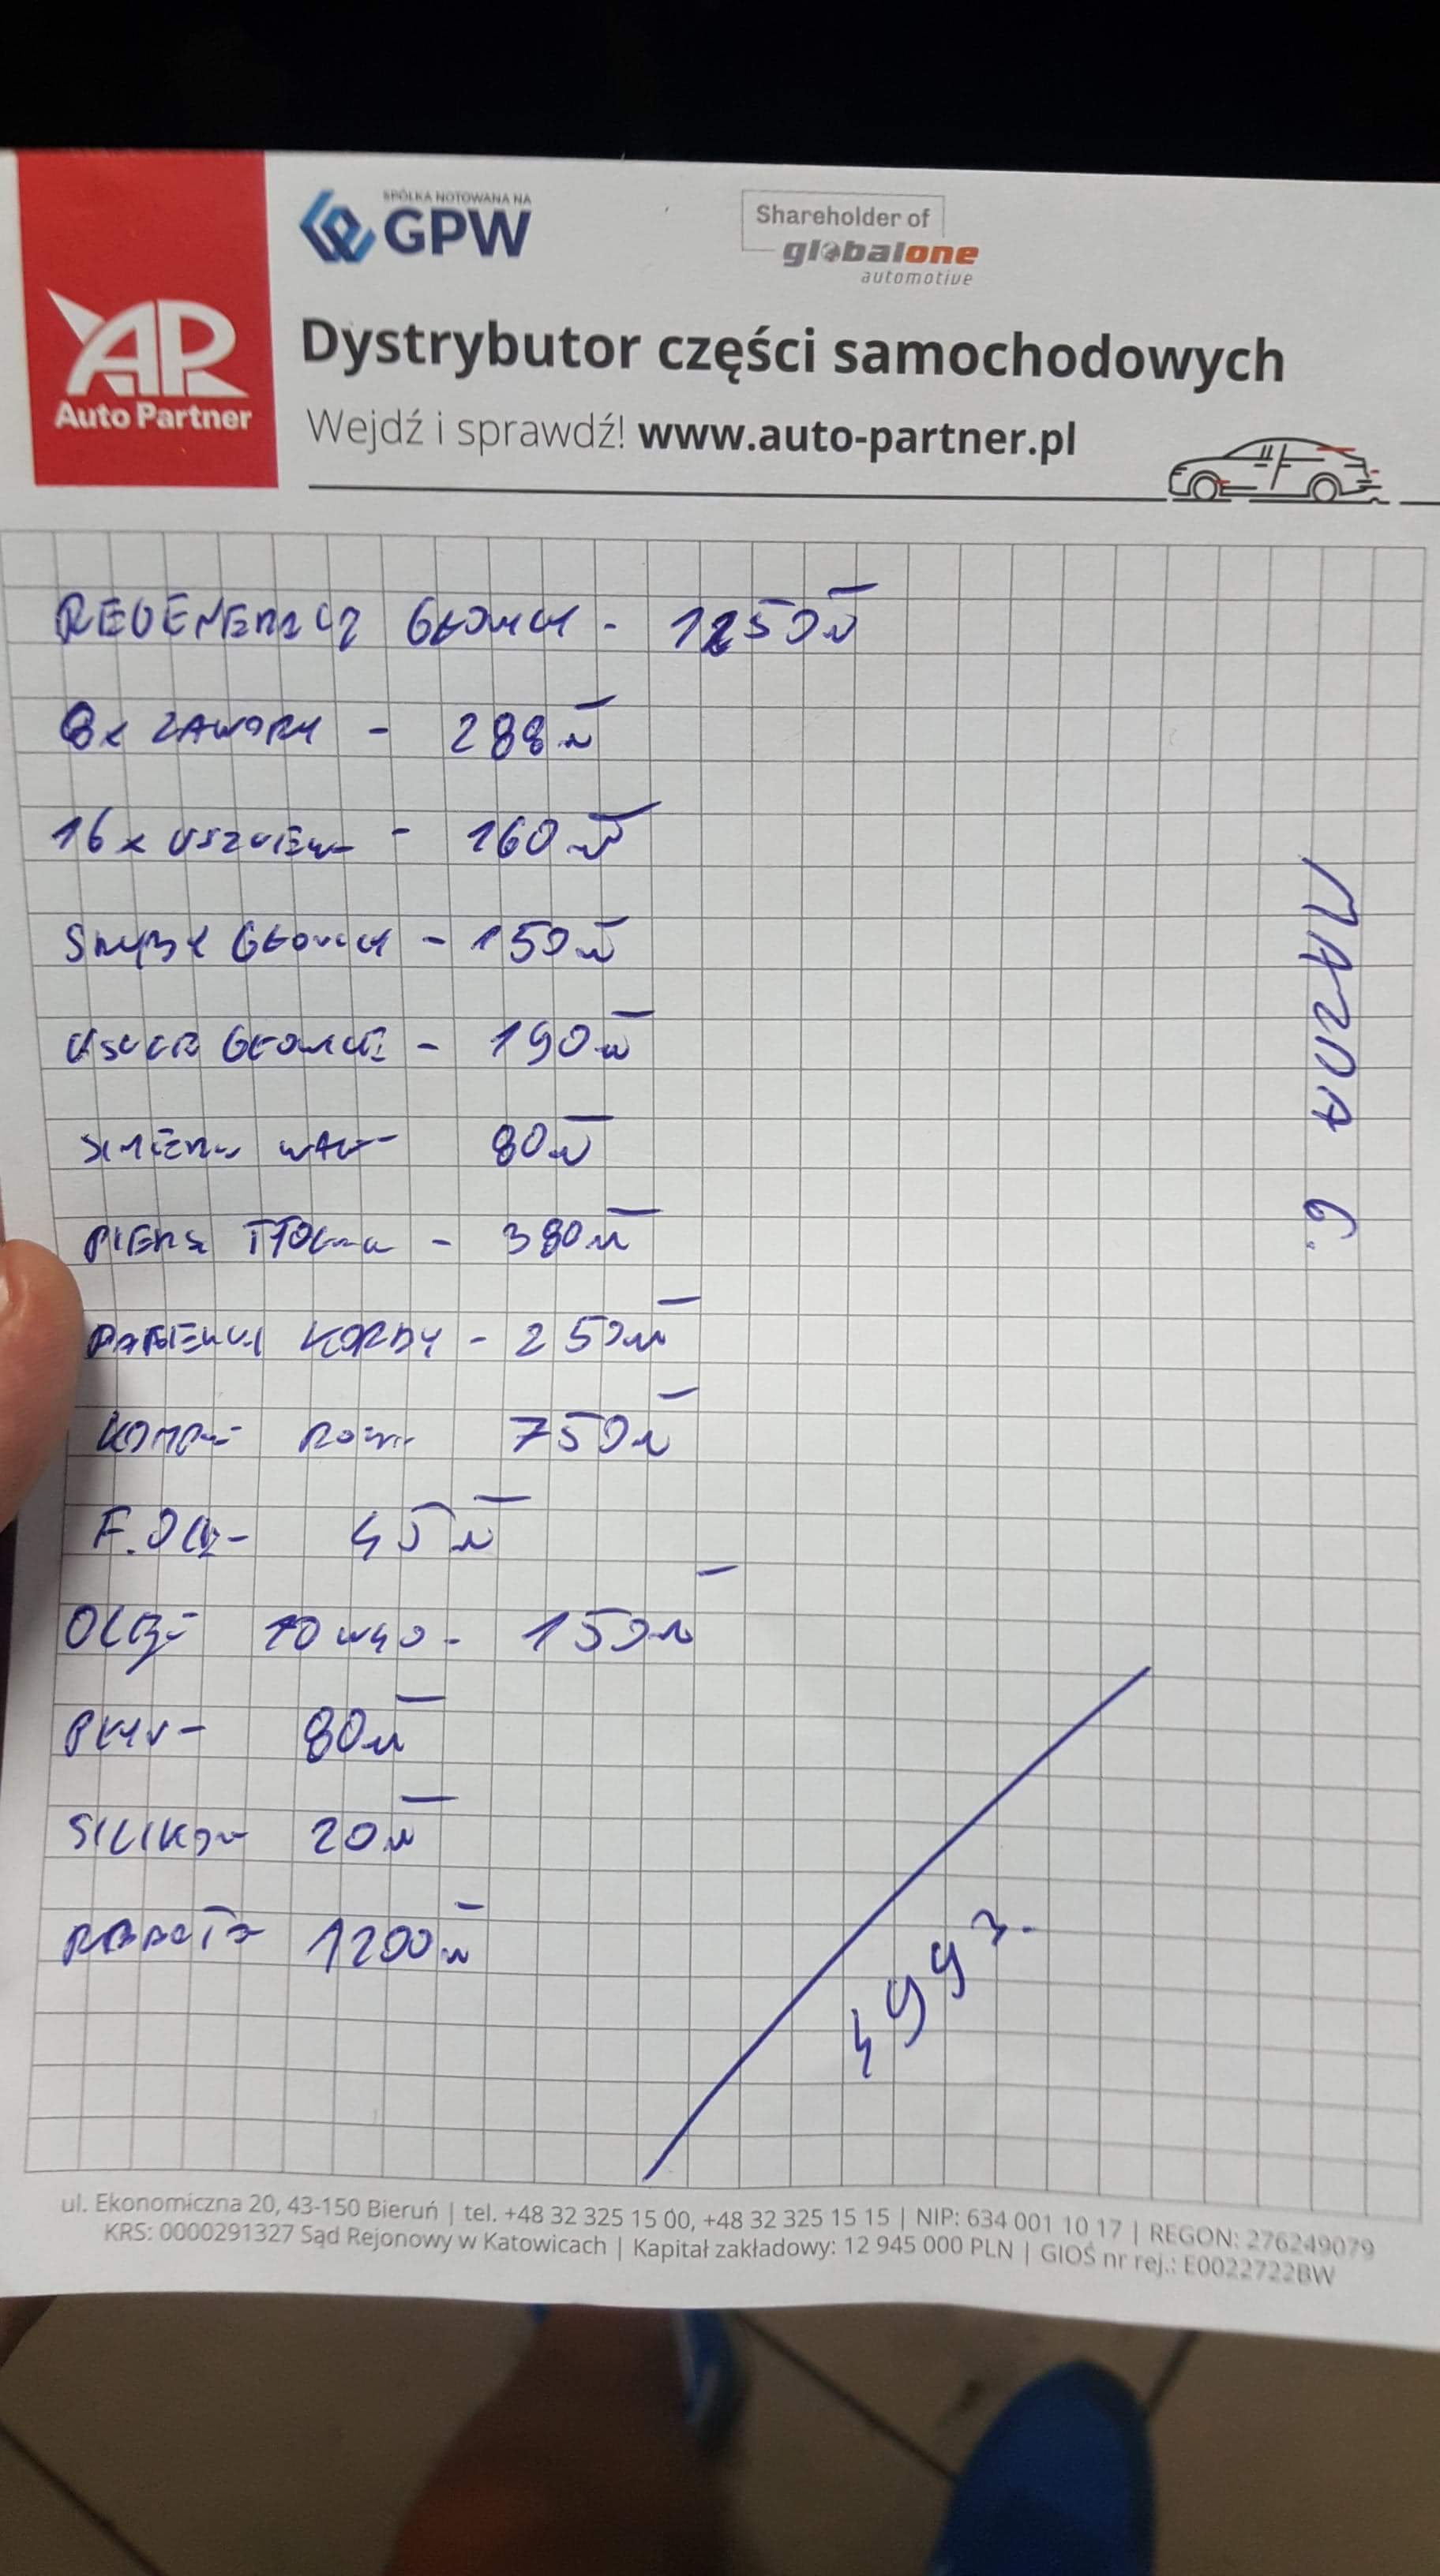 SPÓŁKA NOTOWANA NA
GPW
Shareholder of
globalone
automotive
AP
Auto Partner
Dystrybutor części samochodowych
Wejdź i sprawdź! www.auto-partner.pl
REGENERACJ GŁOWICY - 1250 zł
8x ZAWORY - 288 zł
16x - 160 zł
ŚRUBY GŁOWICY - 150 zł
GŁOWICĘ - 190 zł
80 zł
PIERŚ TŁOK - 380 zł
PANEWKI KORBY - 250 zł
KOMPL 750 zł
F. OLEJ - 45 zł
OLEJ 10W40 - 150 zł
PŁYN - 80 zł
SILIKON 20 zł
ROBOTA 1200 zł
4993.
MAZDA 6.
ul. Ekonomiczna 20, 43-150 Bieruń | tel. +48 32 325 15 00, +48 32 325 15 15 | NIP: 634 001 10 17 | REGON: 276249079
KRS: 0000291327 Sąd Rejonowy w Katowicach | Kapitał zakładowy: 12 945 000 PLN | GIOŚ nr rej.: E0022722BW